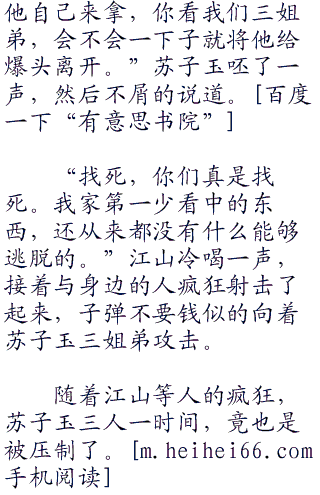 他自己来拿，你看我们三姐
弟，会不会一下子就将他给
爆头离开。”苏子玉呸了一
声，然后不屑的说道。[百度
一下“有意思书院”]
“找死，你们真是找
死。我家第一少看中的东
西，还从来都没有什么能够
逃脱的。”江山冷喝一声，
接着与身边的人疯狂射击了
起来，子弹不要钱似的向着
苏子玉三姐弟攻击。
随着江山等人的疯狂，
苏子玉三人一时间，竟也是
被压制了。[m.heihei66.com
手机阅读]